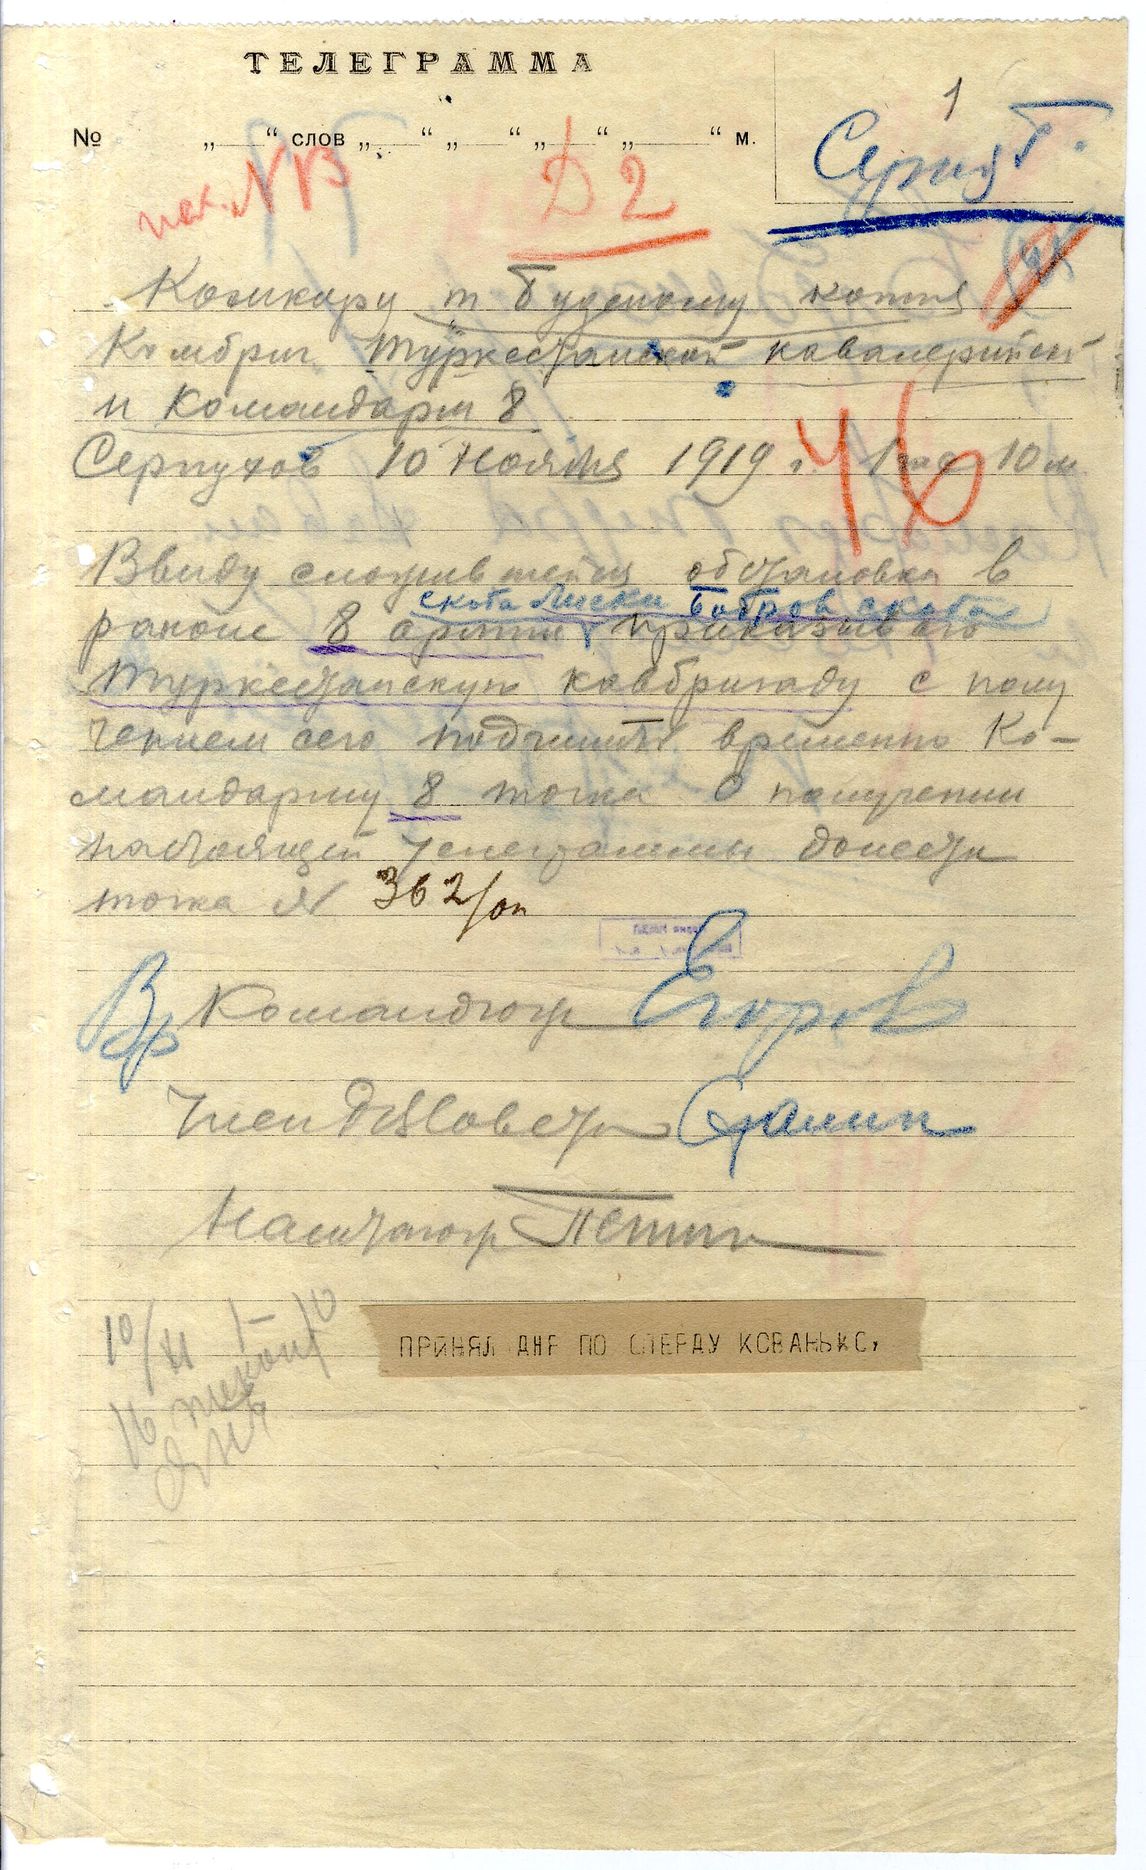 ТЕЛЕГРАММА
1
№ „ “ слов „ “ „ “ „ “ „ “ м.
Д 2
46
Комкору т Буденому копия
Комбриг Туркестанской кавалерийской
и Командарм 8
Серпухов 10 ноября 1919 г. 1 час 10 м
Ввиду сложившейся обстановки в
скоба Лиски Бобров скоба
районе 8 армии приказываю
Туркестанскую кавбригаду с полу
чением сего подчинить временно Ко-
мандарму 8 точка О получении
настоящей телеграммы донести
точка № 362/оп
Вр Командюж Егоров
Член РВСовета Сталин
Наштаюж Петин
10/XI 1-10
ПРИНЯЛ ДНР ПО СПЕРДУ КОВАНЬКС,